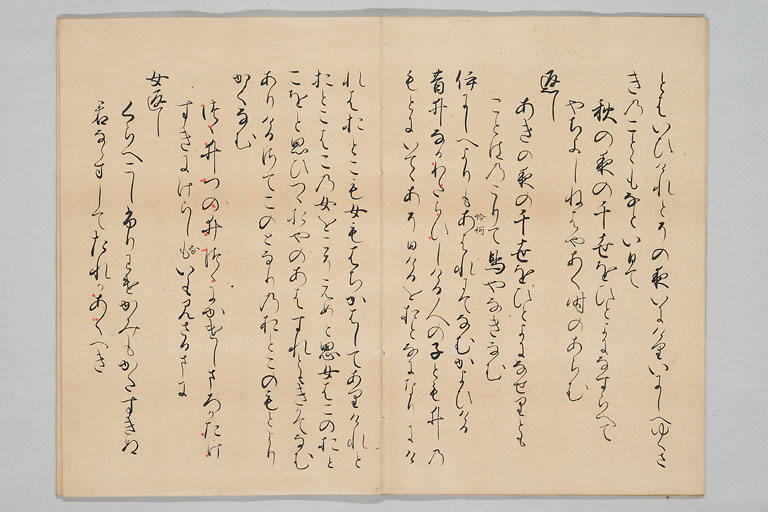 とはいひけれとその夜いにけりいにしへゆくさ
きのことゝもなといひて
秋の夜の千世をひとよになすらへて
やちよしねはやあく時のあらむ
返し
あきの夜の千世をひとよになせりとも
ことはのこりて鳥やなきなむ
いにしへよりもあはれにてなむかよひける
昔井なかわたらひしける人の子とも井の
もとにいてゝあそひけるをおとなになりにけ
れはおとこも女もはちかはしてありけれと
おとこはこの女をこそえめと思女はこのおと
こをと思ひつゝおやのあはすれともきかてなむ
ありけるさてこのとなりのおとこのもとより
かくなむ
つゝ井つの井つゝにかけしまろかたけ
すきにけらしもいも見さるまに
女返し
くらへこしふりわけかみもかたすきぬ
君ならすしてたれかあくへき